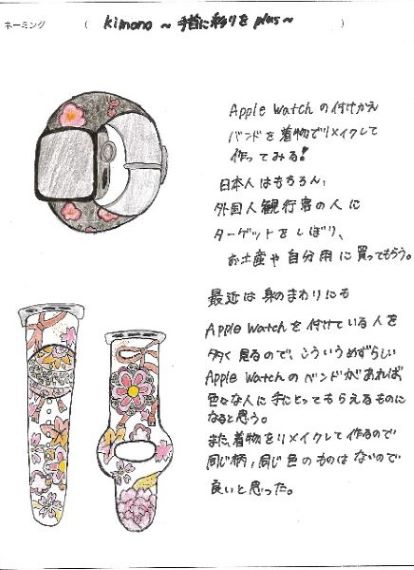 ネーミング ( kimono ～手首に彩りをplus～ )
Apple Watch の付けかえ
バンドを着物でリメイクして
作ってみる!
日本人はもちろん、
外国人観行客の人に
ターゲットをしぼり、
お土産や自分用に買ってもらう。
最近は身のまわりにも
Apple Watchを付けている人を
多く見るので、こういうめずらしい
Apple Watchのバンドがあれば
色々な人に手にとってもらえるものに
なると思う。
また、着物をリメイクして作るので
同じ柄、同じ色のものはないので
良いと思った。